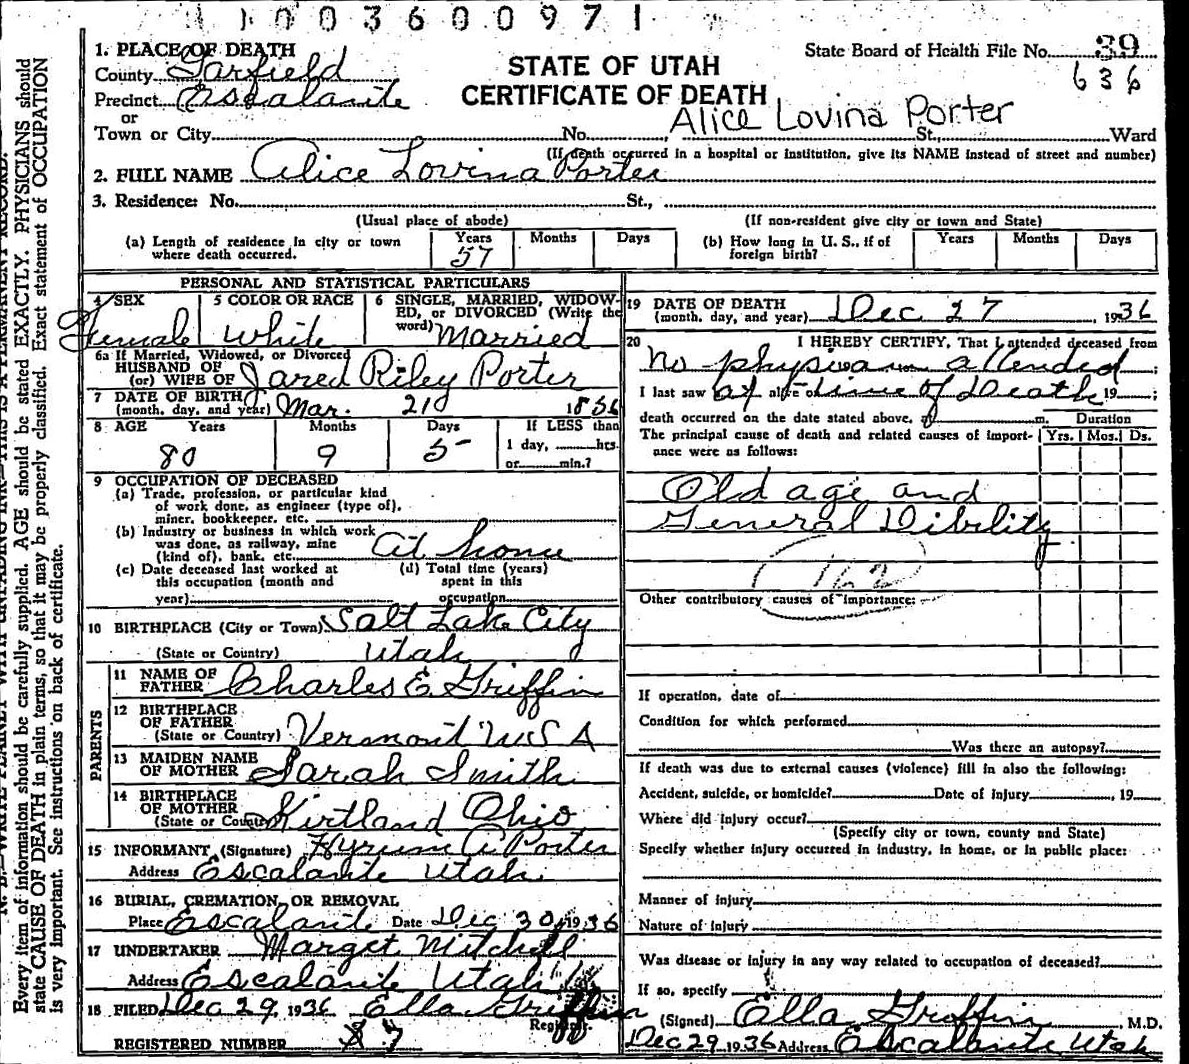 1003600971
1. PLACE OF DEATH
County Garfield
State Board of Health File No. 39
636
STATE OF UTAH
CERTIFICATE OF DEATH
Precinct Escalante
or
Alice Lovina Porter
Town or City No. St. Ward
(If death occurred in a hospital or institution, give its NAME instead of street and number)
2. FULL NAME Alice Lovina Porter
3. Residence: No. St.,
(Usual place of abode) (If non-resident give city or town and State)
(a) Length of residence in city or town where death occurred. Years 57 Months Days
(b) How long in U. S., if of foreign birth? Years Months Days
PERSONAL AND STATISTICAL PARTICULARS
4 SEX Female
5 COLOR OR RACE White
6 SINGLE, MARRIED, WIDOWED, or DIVORCED (Write the word) Married
6a If Married, Widowed, or Divorced
HUSBAND OF
(or) WIFE OF Jared Riley Porter
7 DATE OF BIRTH
(month, day, and year) Mar. 21 1856
8 AGE Years 80 Months 9 Days 5
If LESS than
1 day, hrs.
or min.?
9 OCCUPATION OF DECEASED
(a) Trade, profession, or particular kind
of work done, as engineer (type of),
miner, bookkeeper, etc.
(b) Industry or business in which work
was done, as railway, mine
(kind of), bank, etc. At home
(c) Date deceased last worked at
this occupation (month and
year)
(d) Total time (years)
spent in this
occupation
10 BIRTHPLACE (City or Town) Salt Lake City
(State or Country) Utah
PARENTS
11 NAME OF
FATHER Charles E Griffin
12 BIRTHPLACE
OF FATHER
(State or Country) Vermont USA
13 MAIDEN NAME
OF MOTHER Sarah Smith
14 BIRTHPLACE
OF MOTHER
(State or Country) Kirtland Ohio
15 INFORMANT (Signature) Hyrum A Porter
Address Escalante Utah.
16 BURIAL, CREMATION, OR REMOVAL
Place Escalante Date Dec 30, 1936
17 UNDERTAKER Marget Mitchell
Address Escalante Utah
18 FILED Dec 29, 1936 Ella Griffin
Registrar
REGISTERED NUMBER 7
19 DATE OF DEATH
(month, day, and year) Dec 27, 1936
20 I HEREBY CERTIFY, That I attended deceased from
No physician attended
I last saw at alive o time of Death 19 ;
death occurred on the date stated above, at m.
Duration
The principal cause of death and related causes of importance were as follows:
Yrs. Mos. Ds.
Old age and
General Dibility
162
Other contributory causes of importance:
If operation, date of
Condition for which performed
Was there an autopsy?
If death was due to external causes (violence) fill in also the following:
Accident, suicide, or homicide? Date of injury , 19
Where did injury occur?
(Specify city or town, county and State)
Specify whether injury occurred in industry, in home, or in public place:
Manner of injury
Nature of injury
Was disease or injury in any way related to occupation of deceased?
If so, specify
(Signed) Ella Griffin M.D.
Dec 29 1936 Address Escalante Utah
Every item of information should be carefully supplied. AGE should be stated EXACTLY. PHYSICIANS should
state CAUSE OF DEATH in plain terms, so that it may be properly classified. Exact statement of OCCUPATION
is very important. See instructions on back of certificate.